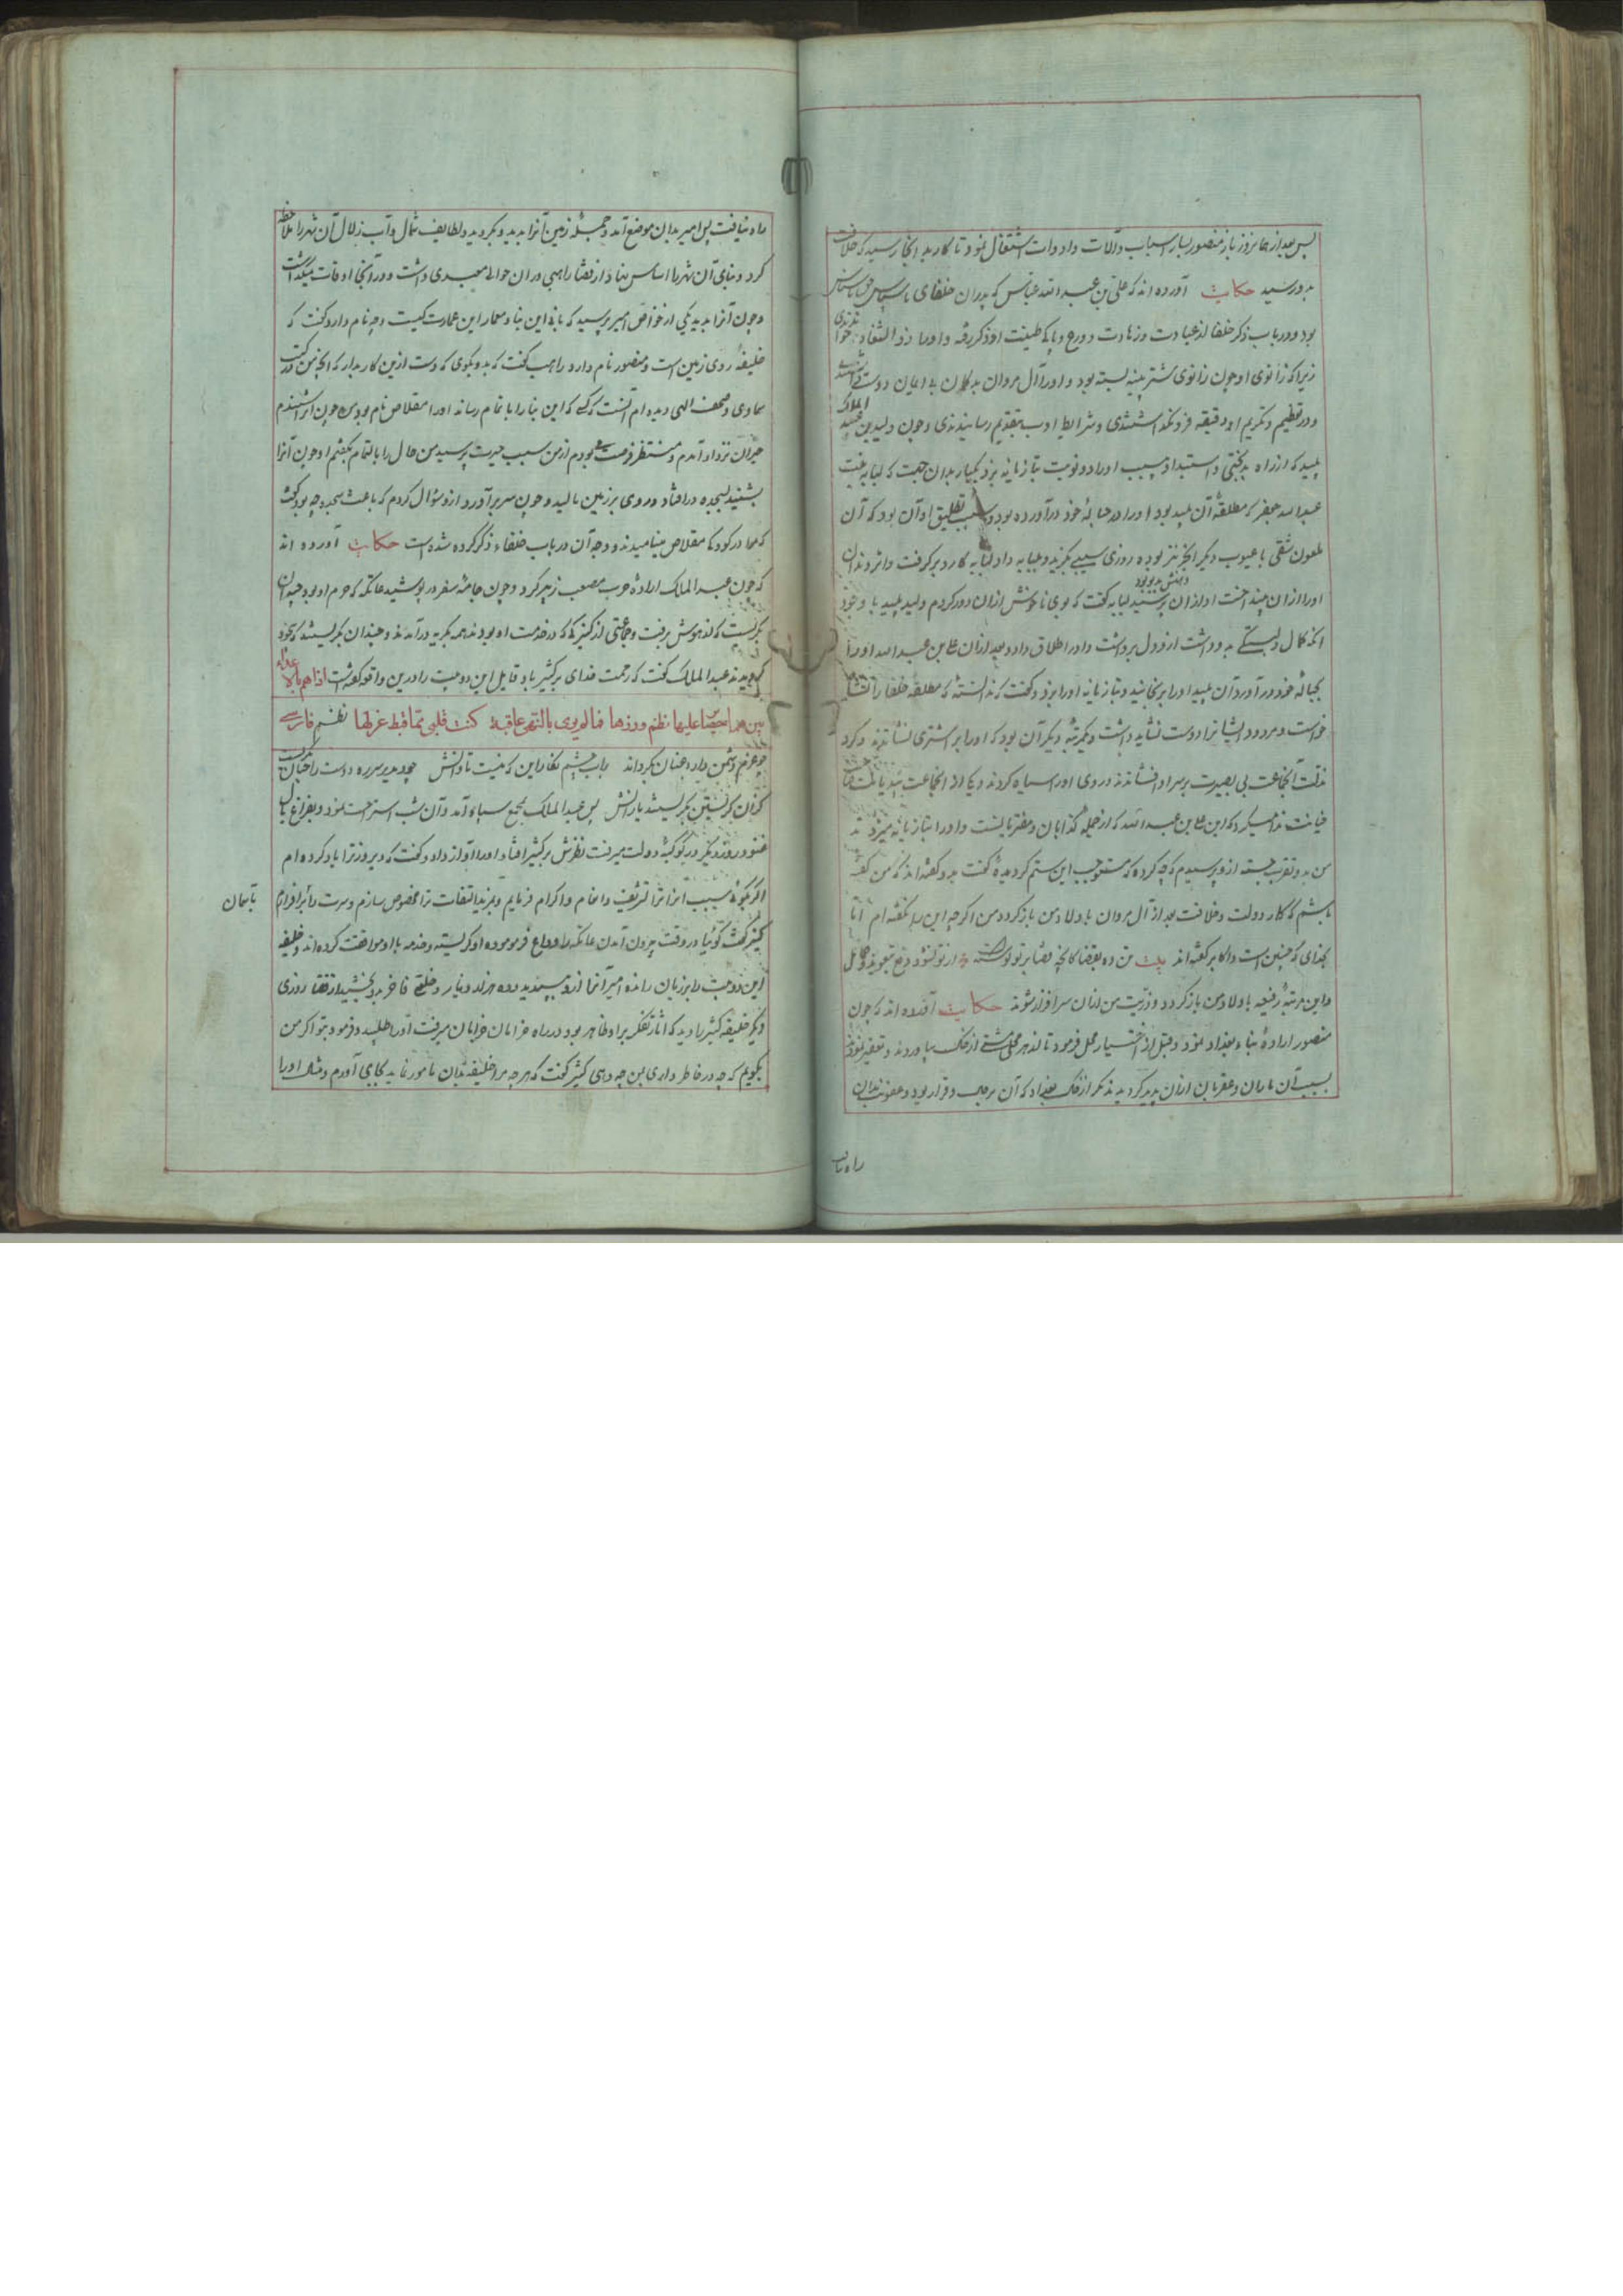 پس بعد از هما نروز باز منصور بساز اسباب وآلات وادوات اشتغال نمود تا کار بدانجا رسید که خلافت
بدو رسید حکایت آورده اند که علی بن عبدالله عباس که پدران خلفای با سپاس
بود ودر باب ذکر خلفا از عبادت وزهادت وورع وپاکی طینت او ذکر رفته واورا ذو الثفنات خواندندی
زیرا که زانوی او چون زانوی شتر پینه بسته بود واورا آل مروان بدکلان بی ایمان دوست
ودر تعظیم وتکریم او دقیقه فرو نگذاشتندی وشرایط ادب بتقدیم رسانیدندی وچون ولید بن عبد الملک
پلید که از راه بدبختی واستبداد وبی سبب اورا دو نوبت بتازیانه بزد یکبار بدان جهت که لبابه بنت
عبدالله جعفر که مطلقه آن پلید بود اورا در حباله خود درآورده بود وسبب تطلیق او آن بود که آن
ملعون شقی با عیوب دیگر ابخر نیز بوده روزی سیبی بگزید وبلبابه داد لبابه کارد بر گرفت واثر دندان
اورا از آن بینداخت او ازان پرسید لبابه گفت که بوی ناخوش ازان دور کردم ولید پلید با وجود
دهنش بد بو بود
آنکه کمال دلبستگی بدو داشت از و دل برداشت واورا طلاق داد وبعد ازان علی بن عبدالله اورا
بحباله خود در آورد آن پلید اورا برنجانید وبتازیانه اورا بزد وگفت که ندانسته که مطلقه خلفا را
خواست ومردود ایشانرا دوست نشاید داشت ودیگر مرتبه دیگر آن بود که اورا بر اشتری نشاندند وگرد
مذلت آنجماعت بی بصیرت بر سر او فشاندند وروی اورا سیاه کردند ویکی از انجماعت
خیانت ندا میکرد که این علی بن عبدالله که از جمله کذابان ومفتریانست واورا بتازیانه میزدند
من بدو تقرب جسته ازو پرسیدم که چه کرده که مستوجب این ستم گردیده گفت بدو گفته اند که من گفته
باشم که کار دولت وخلافت بعد از آل مروان باولاد من باز گردد ومن اگرچه این را نگفته ام اما
بخدای که چنین است واکابر گفته اند بیت تن ده بقضا کانچه قضا بر تو نوشته از تو نشود دفع بتعوید
واین مرتبه رفیعه باولاد من باز گردد وذریت من ازان سرافراز شوند حکایت آورده اند که چون
منصور اراده بناء بغداد نمود وقبل از اختیار محل فرمود تا از هر محلی مشتی از خاک بیاوردند
بسبب آن ماران وعقربان ازان پدید گردیدند مگر از خاک بغداد که آن برحال وقرار بود وعفونت بدان
راه نیافت
راه نیافت پس امیر بدان موضع آمد وجمله زمین آنرا بدید وبگردید ولطایف شمال وآب زلال آن شهر را ملاحظه
کرد وبنای آن شهر را اساس بنهاد از قضا راهبی دران حوالی معبدی داشت ودر آنجا اوقات میگذاشت
وچون آنرا بدید یکی از خواص امیر پرسید که بانی این بنا ومعمار این عمارت کیست وچه نام دارد گفت که
خلیفه روی زمین است ومنصور نام دارد راهب گفت که بدو بگوی که دست ازین کار بدار که آنچه من در کتب
سماوی وصحف الهی دیده ام آنست که کسی که این بنا را باتمام رساند اورا مقلاص نام بود من چون این شنیدم
حیران نزد او آمدم ومنتظر فرصت بودم از من سبب حیرت پرسید من حال را بالتمام بگفتم او چون آنرا
بشنید بسجده در افتاد وروی بر زمین مالید وچون سر برآورد ازو سؤال کردم که باعث سجده چه بود گفت
که مرا در کودکی مقلاص مینامیدند ووجه آن در باب خلفاء ذکر کرده شده است حکایت آورده اند
که چون عبدالملک اراده حرب مصعب زبیر کرد وچون جامه سفر در پوشید عاتکه که حرم او بود چندان
بگریست که از هوش برفت وجماعتی از کنیزکان که در خدمت او بودند همه بگریه درآمدند وچندان بگریستند که بیخود
گردیدند عبدالملک گفت که رحمت خدای بر کثیر باد قایل این دو بیت را در این واقعه گفته است اذا هم بالاعداء
نظم فارسی
چو عزم دشمن دارد عنان بگرداند
کزان گریستن بگریستند یارانش پس عبدالملک بجمع سپاه آمد وآن شب استراحت نمود وبفراغ بال
غنود وروز دیگر در کوکبه دولت میرفت نظرش بر کثیر افتاد اورا آواز داد وگفت که دیروز ترا یاد کرده ام
اگر بگوئی سبب آنرا ترا تشریف وانعام واکرام فرمایم وبمزید التفات ترا مخصوص سازم وسرت را برافرازم
بآسمان
کثیر گفت گوئیا در وقت بیرون آمدن عاتکه را وداع فرموده او گریسته وخدمه با او موافقت کرده اند وخلیفه
این دو بیت را بر زبان رانده امیر آنرا ازو پسندیده وده هزار دینار وخلعتی فاخر بدو بخشید از قضا روزی
دیگر خلیفه کثیر را دید که آثار تفکر بر او ظاهر بود در راه خرامان خرامان میرفت اورا طلبید وفرمود بتو اگر من
بگویم که چه در خاطر داری بمن چه دهی کثیر گفت که هرچه مرا خلیفه بدان مامور نماید بجای آورم ومثال اورا